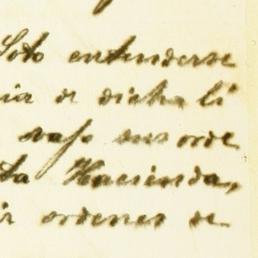 Soto entenderse
ia de dicha li
vajo sus orde
ta Hacienda,
ir ordenes de